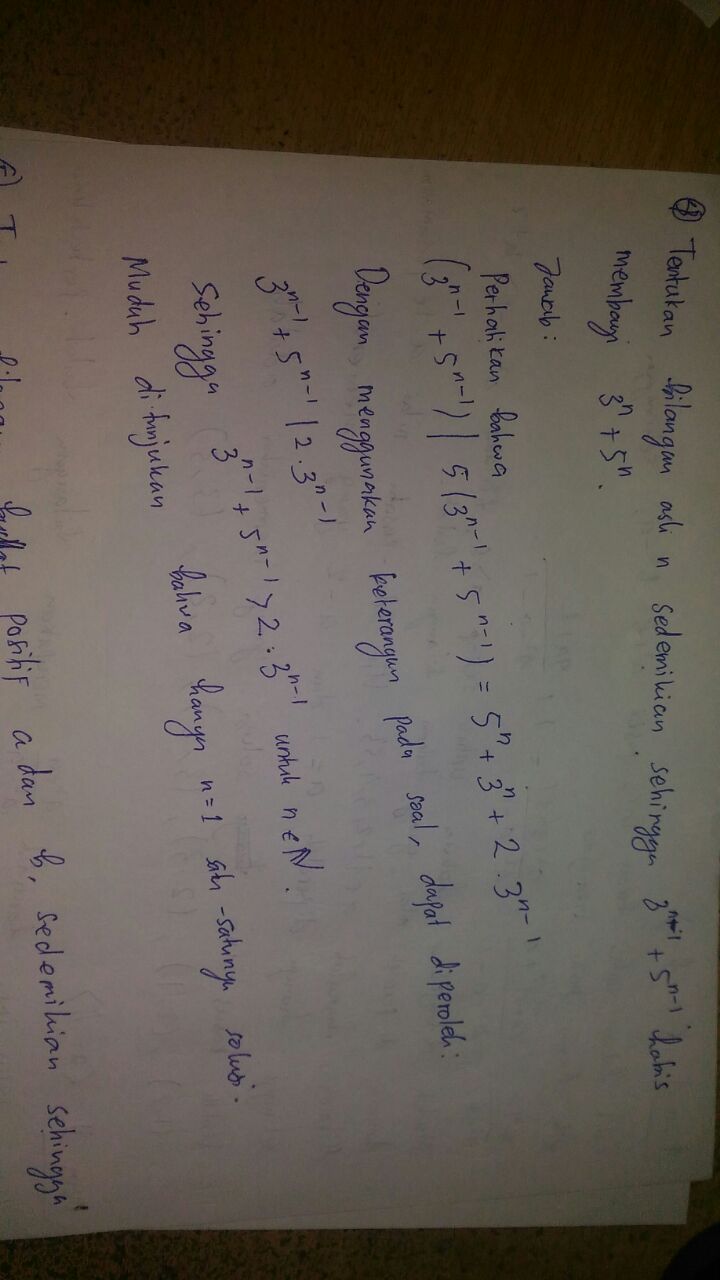 ④ Tentukan bilangan asli n sedemikian sehingga 3^{n-1} + 5^{n-1} habis
membagi 3^n + 5^n.
Jawab:
Perhatikan bahwa
(3^{n-1} + 5^{n-1}) | 5(3^{n-1} + 5^{n-1}) = 5^n + 3^n + 2 . 3^{n-1}
Dengan menggunakan keterangan pada soal, dapat diperoleh:
3^{n-1} + 5^{n-1} | 2 . 3^{n-1}
Sehingga 3^{n-1} + 5^{n-1} > 2 . 3^{n-1} untuk n ∈ ℕ.
Mudah ditunjukan bahwa hanya n=1 satu-satunya solusi.
bilangan bulat positif a dan b, sedemikian sehingga